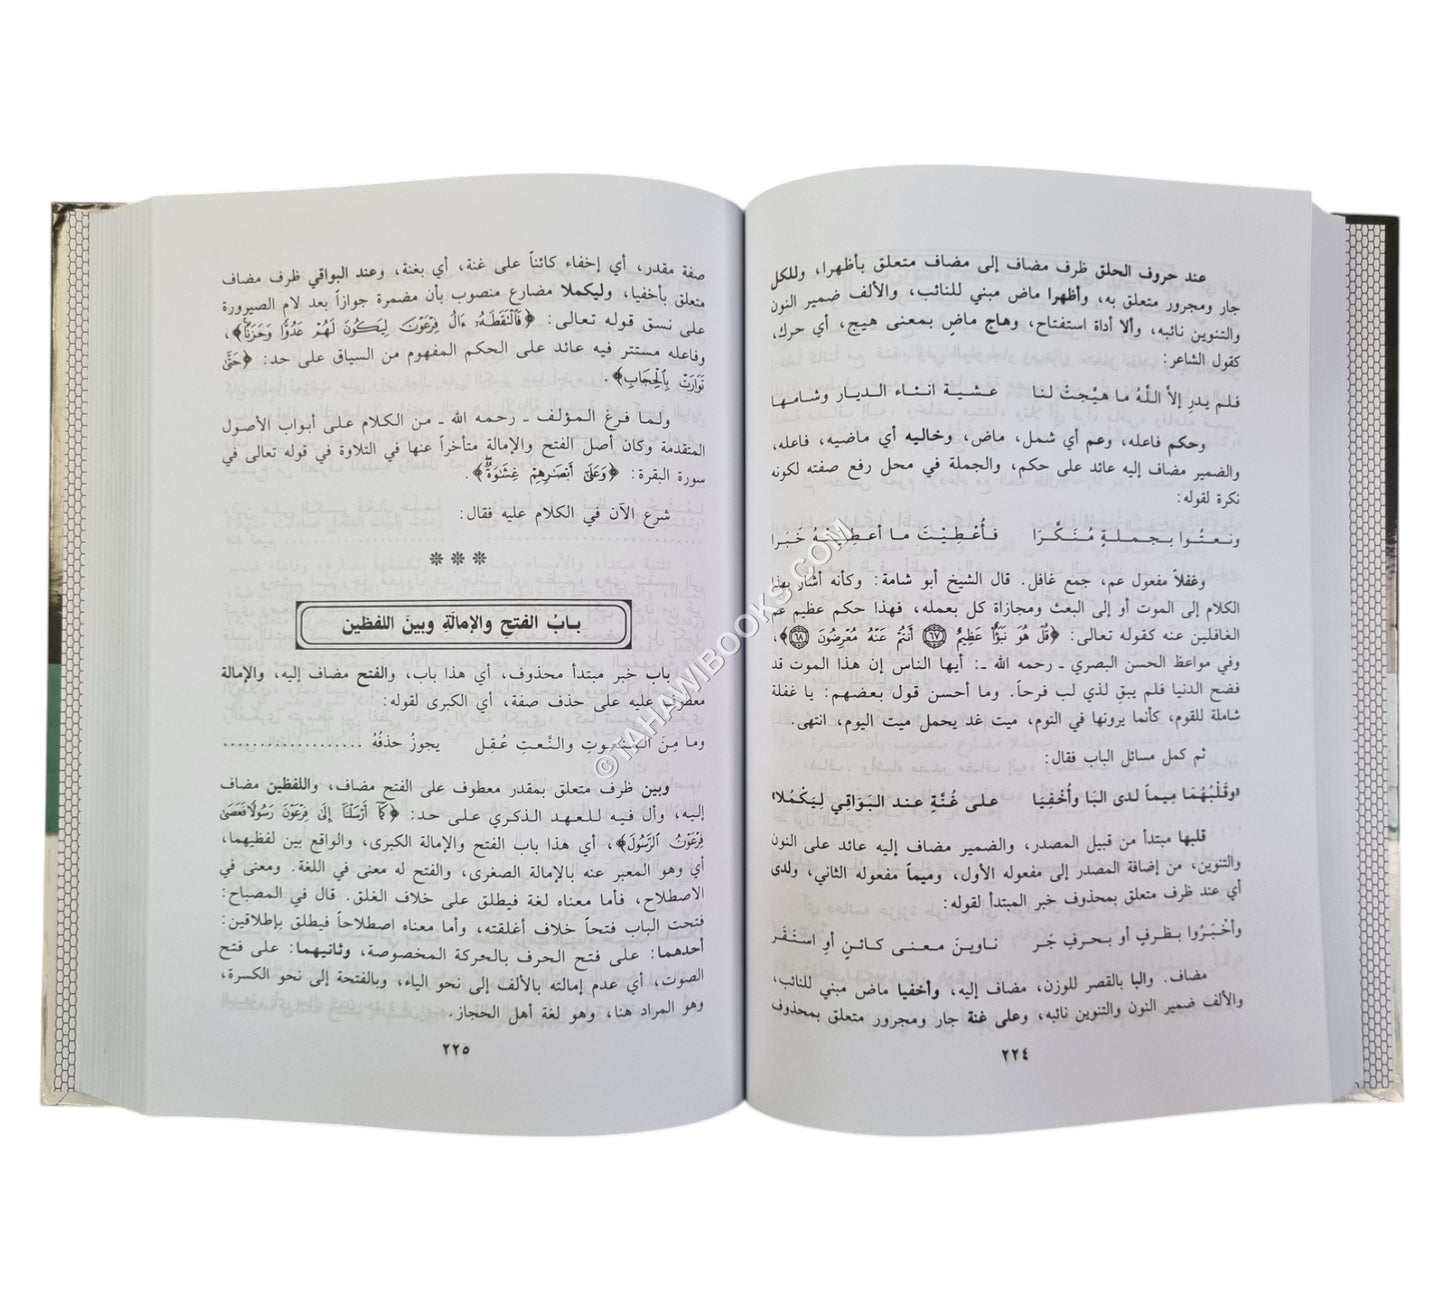 عند حروف الحلق ظرف مضاف إلى مضاف متعلق بأظهرا، وللكل
جار ومجرور متعلق به، وأظهرا ماض مبني للنائب، والألف ضمير النون
والتنوين نائبه، وألا أداة استفتاح، وهاج ماض بمعنى هيج، أي حرك،
كقول الشاعر:
فلم يدرِ إلاَّ اللَّهُ ما هيَّجتْ لنا عشية انئاء الديار وشامها
وحكم فاعله، وعم أي شمل، ماض، وخاليه أي ماضيه، فاعله،
والضمير مضاف إليه عائد على حكم، والجملة في محل رفع صفته لكونه
نكرة لقوله:
ونعتُوا بجملةٍ مُنَكَّرَا فأُعْطِيَتْ ما أعطِيَتْهُ خَبَرا
وغفلاً مفعول عم، جمع غافل. قال الشيخ أبو شامة: وكأنه أشار بهذا
الكلام إلى الموت أو إلى البعث ومجازاة كل بعمله، فهذا حكم عظيم عم
الغافلين عنه كقوله تعالى: ﴿قُلْ هُوَ نَبَؤٌا عَظِيمٌ ٦٧ أَنتُمْ عَنْهُ مُعْرِضُونَ ٦٨﴾،
وفي مواعظ الحسن البصري ـ رحمه الله ـ: أيها الناس إن هذا الموت قد
فضح الدنيا فلم يبقِ لذي لب فرحاً. وما أحسن قول بعضهم: يا غفلة
شاملة للقوم، كأنما يرونها في النوم، ميت غد يحمل ميت اليوم، انتهى.
ثم كمل مسائل الباب فقال:
«وقَلْبُهُمَا مِيماً لدى البَا وأُخْفِيَا على غُنَّةٍ عند البَوَاقي لِيَكْمُلا»
قلبها مبتدأ من قبيل المصدر، والضمير مضاف إليه عائد على النون
والتنوين، من إضافة المصدر إلى مفعوله الأول، وميماً مفعوله الثاني، ولدى
أي عند ظرف متعلق بمحذوف خبر المبتدأ لقوله:
وأخْبَرُوا بظرفٍ أو بحرفِ جَر ناوينَ معنى كائنٍ أو استَقَر
مضاف. والبا بالقصر للوزن، مضاف إليه، وأخفيا ماض مبني للنائب،
والألف ضمير النون والتنوين نائبه، وعلى غنة جار ومجرور متعلق بمحذوف
٢٢٤
صفة مقدر، أي إخفاء كائناً على غنة، أي بغنة، وعند البواقي ظرف مضاف
متعلق بأخفيا، وليكملا مضارع منصوب بأن مضمرة جوازاً بعد لام الصيرورة
على نسق قوله تعالى: ﴿فَٱلْتَقَطَهُۥٓ ءَالُ فِرْعَوْنَ لِيَكُونَ لَهُمْ عَدُوًّا وَحَزَنًا﴾،
وفاعله مستتر فيه عائد على الحكم المفهوم من السياق على حد: ﴿حَتَّىٰ
تَوَارَتْ بِٱلْحِجَابِ﴾.
ولما فرغ المؤلف ـ رحمه الله ـ من الكلام على أبواب الأصول
المتقدمة وكان أصل الفتح والإمالة متأخراً عنها في التلاوة في قوله تعالى في
سورة البقرة: ﴿وَعَلَىٰٓ أَبْصَٰرِهِمْ غِشَٰوَةٌ﴾.
شرع الآن في الكلام عليه فقال:
❋ ❋ ❋
بابُ الفتحِ والإمالَةِ وبينَ اللفظين
باب خبر مبتدأ محذوف، أي هذا باب، والفتح مضاف إليه، والإمالة
معطوف عليه على حذف صفة، أي الكبرى لقوله:
وما مِنَ المنعوتِ والنَّعتِ عُقِل يجوزُ حذفُهُ ...................
وبين ظرف متعلق بمقدر معطوف على الفتح مضاف، واللفظين مضاف
إليه، وأل فيه للعهد الذكري على حد: ﴿كَمَآ أَرْسَلْنَآ إِلَىٰ فِرْعَوْنَ رَسُولًا فَعَصَىٰ
فِرْعَوْنُ ٱلرَّسُولَ﴾، أي هذا باب الفتح والإمالة الكبرى، والواقع بين لفظيهما،
أي وهو المعبر عنه بالإمالة الصغرى، والفتح له معنى في اللغة. ومعنى في
الاصطلاح، فأما معناه لغة فيطلق على خلاف الغلق. قال في المصباح:
فتحت الباب فتحاً خلاف أغلقته، وأما معناه اصطلاحاً فيطلق بإطلاقين:
أحدهما: على فتح الحرف بالحركة المخصوصة، وثانيهما: على فتح
الصوت، أي عدم إمالته بالألف إلى نحو الياء، وبالفتحة إلى نحو الكسرة،
وهو المراد هنا، وهو لغة أهل الحجاز.
٢٢٥
©TAHAWIBOOKS.COM